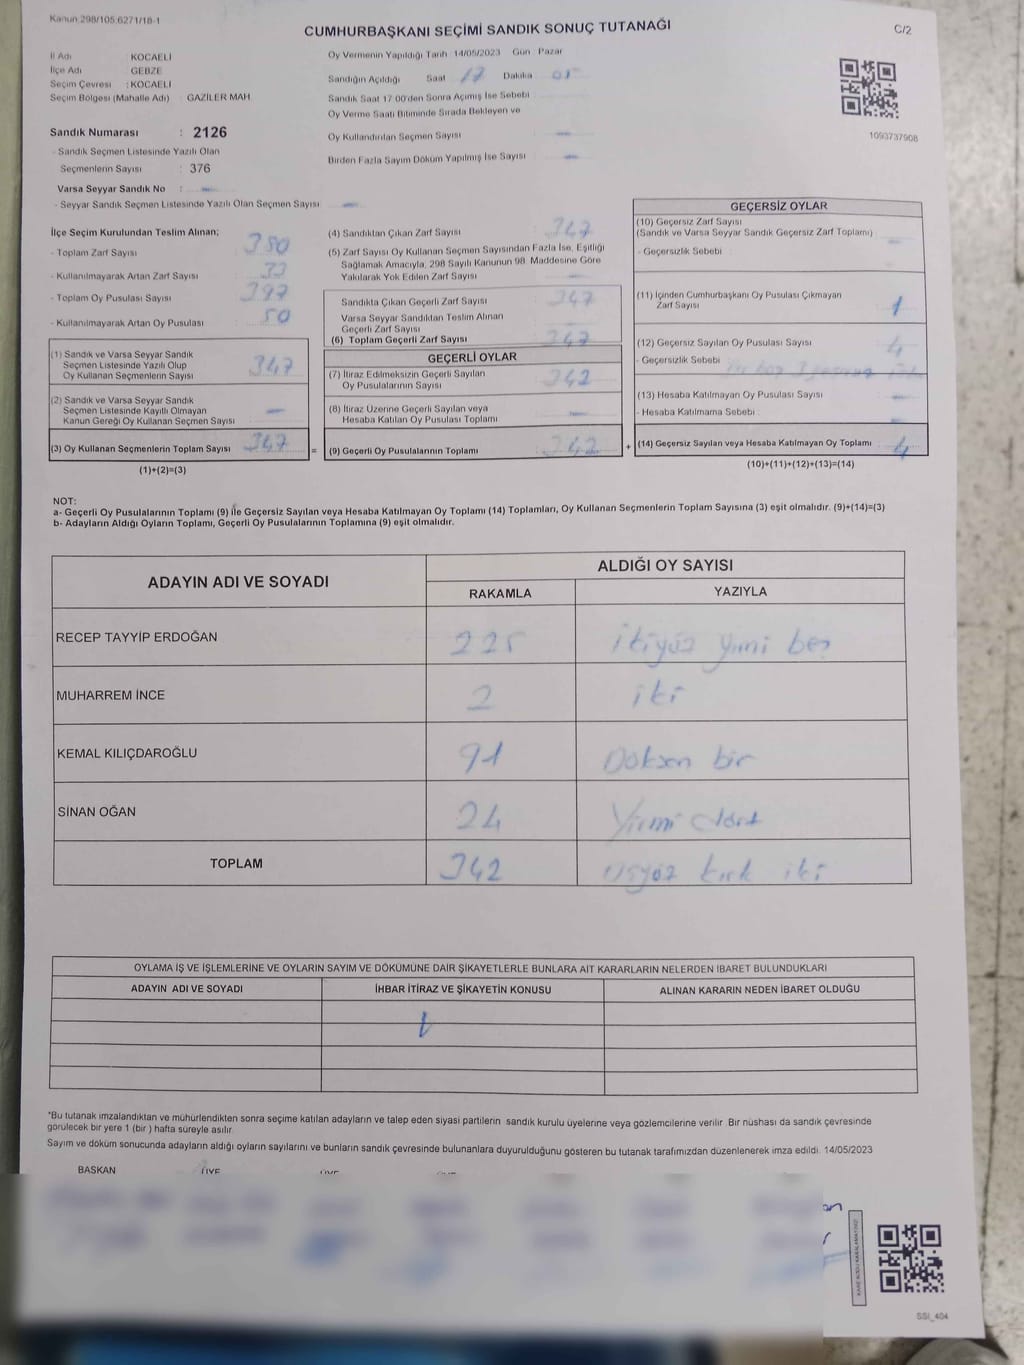 Kanun 298/105 6271/18-1
CUMHURBAŞKANI SEÇİMİ SANDIK SONUÇ TUTANAĞI
C/2
İl Adı KOCAELİ
İlçe Adı GEBZE
Seçim Çevresi : KOCAELİ
Seçim Bölgesi (Mahalle Adı) : GAZİLER MAH.
Sandık Numarası : 2126
- Sandık Seçmen Listesinde Yazılı Olan
Seçmenlerin Sayısı : 376
Varsa Seyyar Sandık No : —
- Seyyar Sandık Seçmen Listesinde Yazılı Olan Seçmen Sayısı —
Oy Vermenin Yapıldığı Tarih 14/05/2023 Gün Pazar
Sandığın Açıldığı Saat 17 Dakika 05
Sandık Saat 17.00'den Sonra Açımış İse Sebebi
Oy Verme Saati Bitiminde Sırada Bekleyen ve
Oy Kullandırılan Seçmen Sayısı —
Birden Fazla Sayım Döküm Yapılmış İse Sayısı —
1093737908
İlçe Seçim Kurulundan Teslim Alınan;
- Toplam Zarf Sayısı 380
- Kullanılmayarak Artan Zarf Sayısı
- Toplam Oy Pusulası Sayısı 397
- Kullanılmayarak Artan Oy Pusulası 50
(1) Sandık ve Varsa Seyyar Sandık
Seçmen Listesinde Yazılı Olup
Oy Kullanan Seçmenlerin Sayısı 347
(2) Sandık ve Varsa Seyyar Sandık
Seçmen Listesinde Kayıtlı Olmayan
Kanun Gereği Oy Kullanan Seçmen Sayısı —
(3) Oy Kullanan Seçmenlerin Toplam Sayısı 347
(1)+(2)=(3)
(4) Sandıktan Çıkan Zarf Sayısı 347
(5) Zarf Sayısı Oy Kullanan Seçmen Sayısından Fazla İse, Eşitliği
Sağlamak Amacıyla, 298 Sayılı Kanunun 98. Maddesine Göre
Yakılarak Yok Edilen Zarf Sayısı —
Sandıkta Çıkan Geçerli Zarf Sayısı 347
Varsa Seyyar Sandıktan Teslim Alınan
Geçerli Zarf Sayısı
(6) Toplam Geçerli Zarf Sayısı 347
GEÇERLİ OYLAR
(7) İtiraz Edilmeksizin Geçerli Sayılan
Oy Pusulalarının Sayısı 342
(8) İtiraz Üzerine Geçerli Sayılan veya
Hesaba Katılan Oy Pusulası Toplamı —
= (9) Geçerli Oy Pusulalarının Toplamı 342 +
GEÇERSİZ OYLAR
(10) Geçersiz Zarf Sayısı
(Sandık ve Varsa Seyyar Sandık Geçersiz Zarf Toplamı) —
- Geçersizlik Sebebi :
(11) İçinden Cumhurbaşkanı Oy Pusulası Çıkmayan
Zarf Sayısı 1
(12) Geçersiz Sayılan Oy Pusulası Sayısı 4
- Geçersizlik Sebebi
(13) Hesaba Katılmayan Oy Pusulası Sayısı —
- Hesaba Katılmama Sebebi : —
(14) Geçersiz Sayılan veya Hesaba Katılmayan Oy Toplamı : 4
(10)+(11)+(12)+(13)=(14)
NOT:
a- Geçerli Oy Pusulalarının Toplamı (9) İle Geçersiz Sayılan veya Hesaba Katılmayan Oy Toplamı (14) Toplamları, Oy Kullanan Seçmenlerin Toplam Sayısına (3) eşit olmalıdır. (9)+(14)=(3)
b- Adayların Aldığı Oyların Toplamı, Geçerli Oy Pusulalarının Toplamına (9) eşit olmalıdır.
ADAYIN ADI VE SOYADI ALDIĞI OY SAYISI
RAKAMLA YAZIYLA
RECEP TAYYİP ERDOĞAN 225 ikiyüz yirmi beş
MUHARREM İNCE 2 iki
KEMAL KILIÇDAROĞLU 91 Doksan bir
SİNAN OĞAN 24 Yirmi dört
TOPLAM 342 üçyüz kırk iki
OYLAMA İŞ VE İŞLEMLERİNE VE OYLARIN SAYIM VE DÖKÜMÜNE DAİR ŞİKAYETLERLE BUNLARA AİT KARARLARIN NELERDEN İBARET BULUNDUKLARI
ADAYIN ADI VE SOYADI İHBAR İTİRAZ VE ŞİKAYETİN KONUSU ALINAN KARARIN NEDEN İBARET OLDUĞU
*Bu tutanak imzalandıktan ve mühürlendikten sonra seçime katılan adayların ve talep eden siyasi partilerin sandık kurulu üyelerine veya gözlemcilerine verilir. Bir nüshası da sandık çevresinde
görülecek bir yere 1 (bir ) hafta süreyle asılır.
Sayım ve döküm sonucunda adayların aldığı oyların sayılarını ve bunların sandık çevresinde bulunanlara duyurulduğunu gösteren bu tutanak tarafımızdan düzenlenerek imza edildi. 14/05/2023
BAŞKAN ÜYE ÜYE ÜYE
SSİ_404